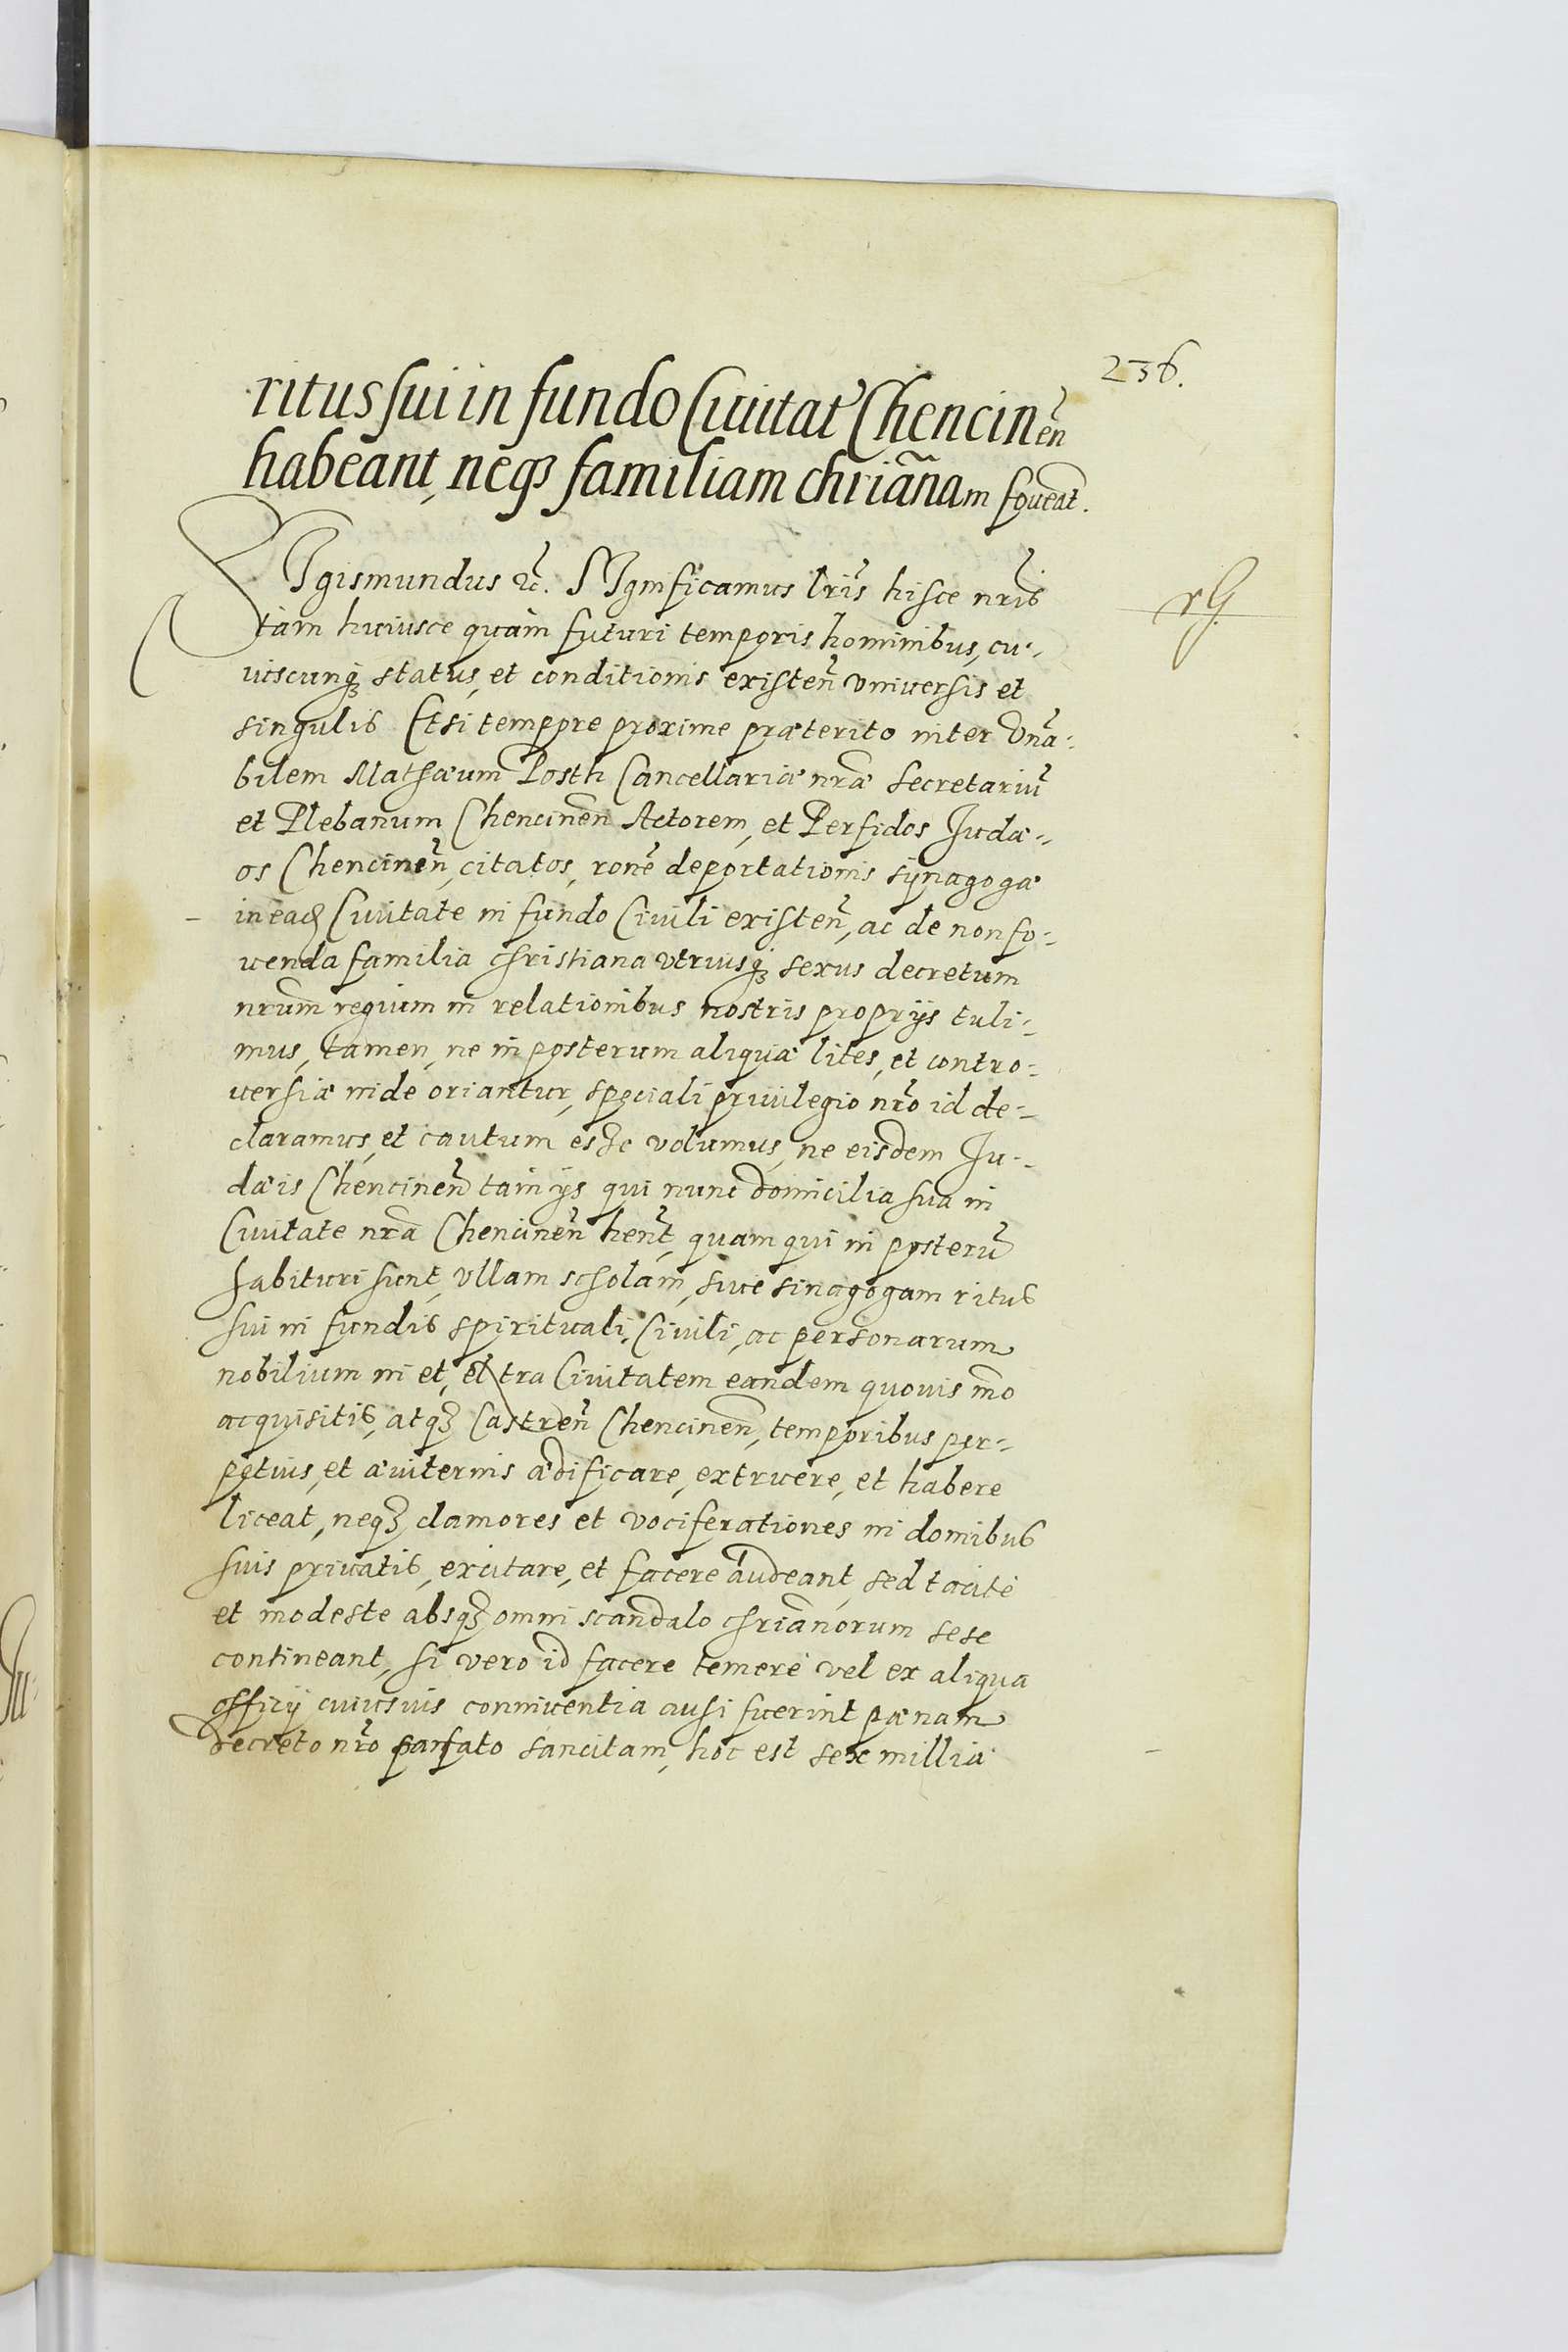 236.
ritus sui in fundo Ciuitat Chencinen
habeant, neqȝ familiam chrianam foueat.
SIgismundus etc. SIgnificamus lris hisce nris
tam huiusce quam futuri temporis hominibus, cu-
uiscunqȝ status, et conditionis existen vniuersis et
singulis Etsi tempore proxime præterito inter Vna-
bilem Mathæum Posth Cancellariæ nræ Secretariu
et Plebanum Chencinen Actorem, et Perfidos Iudæ-
os Chencinen, citatos, rone deportationis synagogæ
in eadʒ Ciuitate in fundo Ciuili existen, ac de non fo-
uenda familia christiana vtriusqȝ sexus decretum
nrum regium in relationibus nostris proprijs tuli-
mus, tamen, ne in posterum aliquæ lites, et contro-
uersiæ inde oriantur, speciali priuilegio nro id de-
claramus, et cautum esse volumus, ne eisdem Iu-
dæis Chencinen tam ijs qui nunc domicilia sua in
Ciuitate nra Chencinen hent, quam qui in posteru
habituri sunt, vllam scholam, siue sinagogam ritus
sui in fundis spirituali, Ciuili, ac personarum
nobilium in et, extra Ciuitatem eandem quouis mo
acquisitis, atqȝ Castren Chencinen, temporibus per-
petuis, et æuiternis ædificare, extruere, et habere
liceat, neqȝ clamores et vociferationes in domibus
suis priuatis, excitare, et facere audeant, sed tacitè
et modeste absqȝ omni scandalo chrianorum sese
contineant, si vero id facere temerè vel ex aliqua
officij cuiusuis conniuentia ausi fuerint pænam
decreto nro præfato sancitam, hoc est sex millia